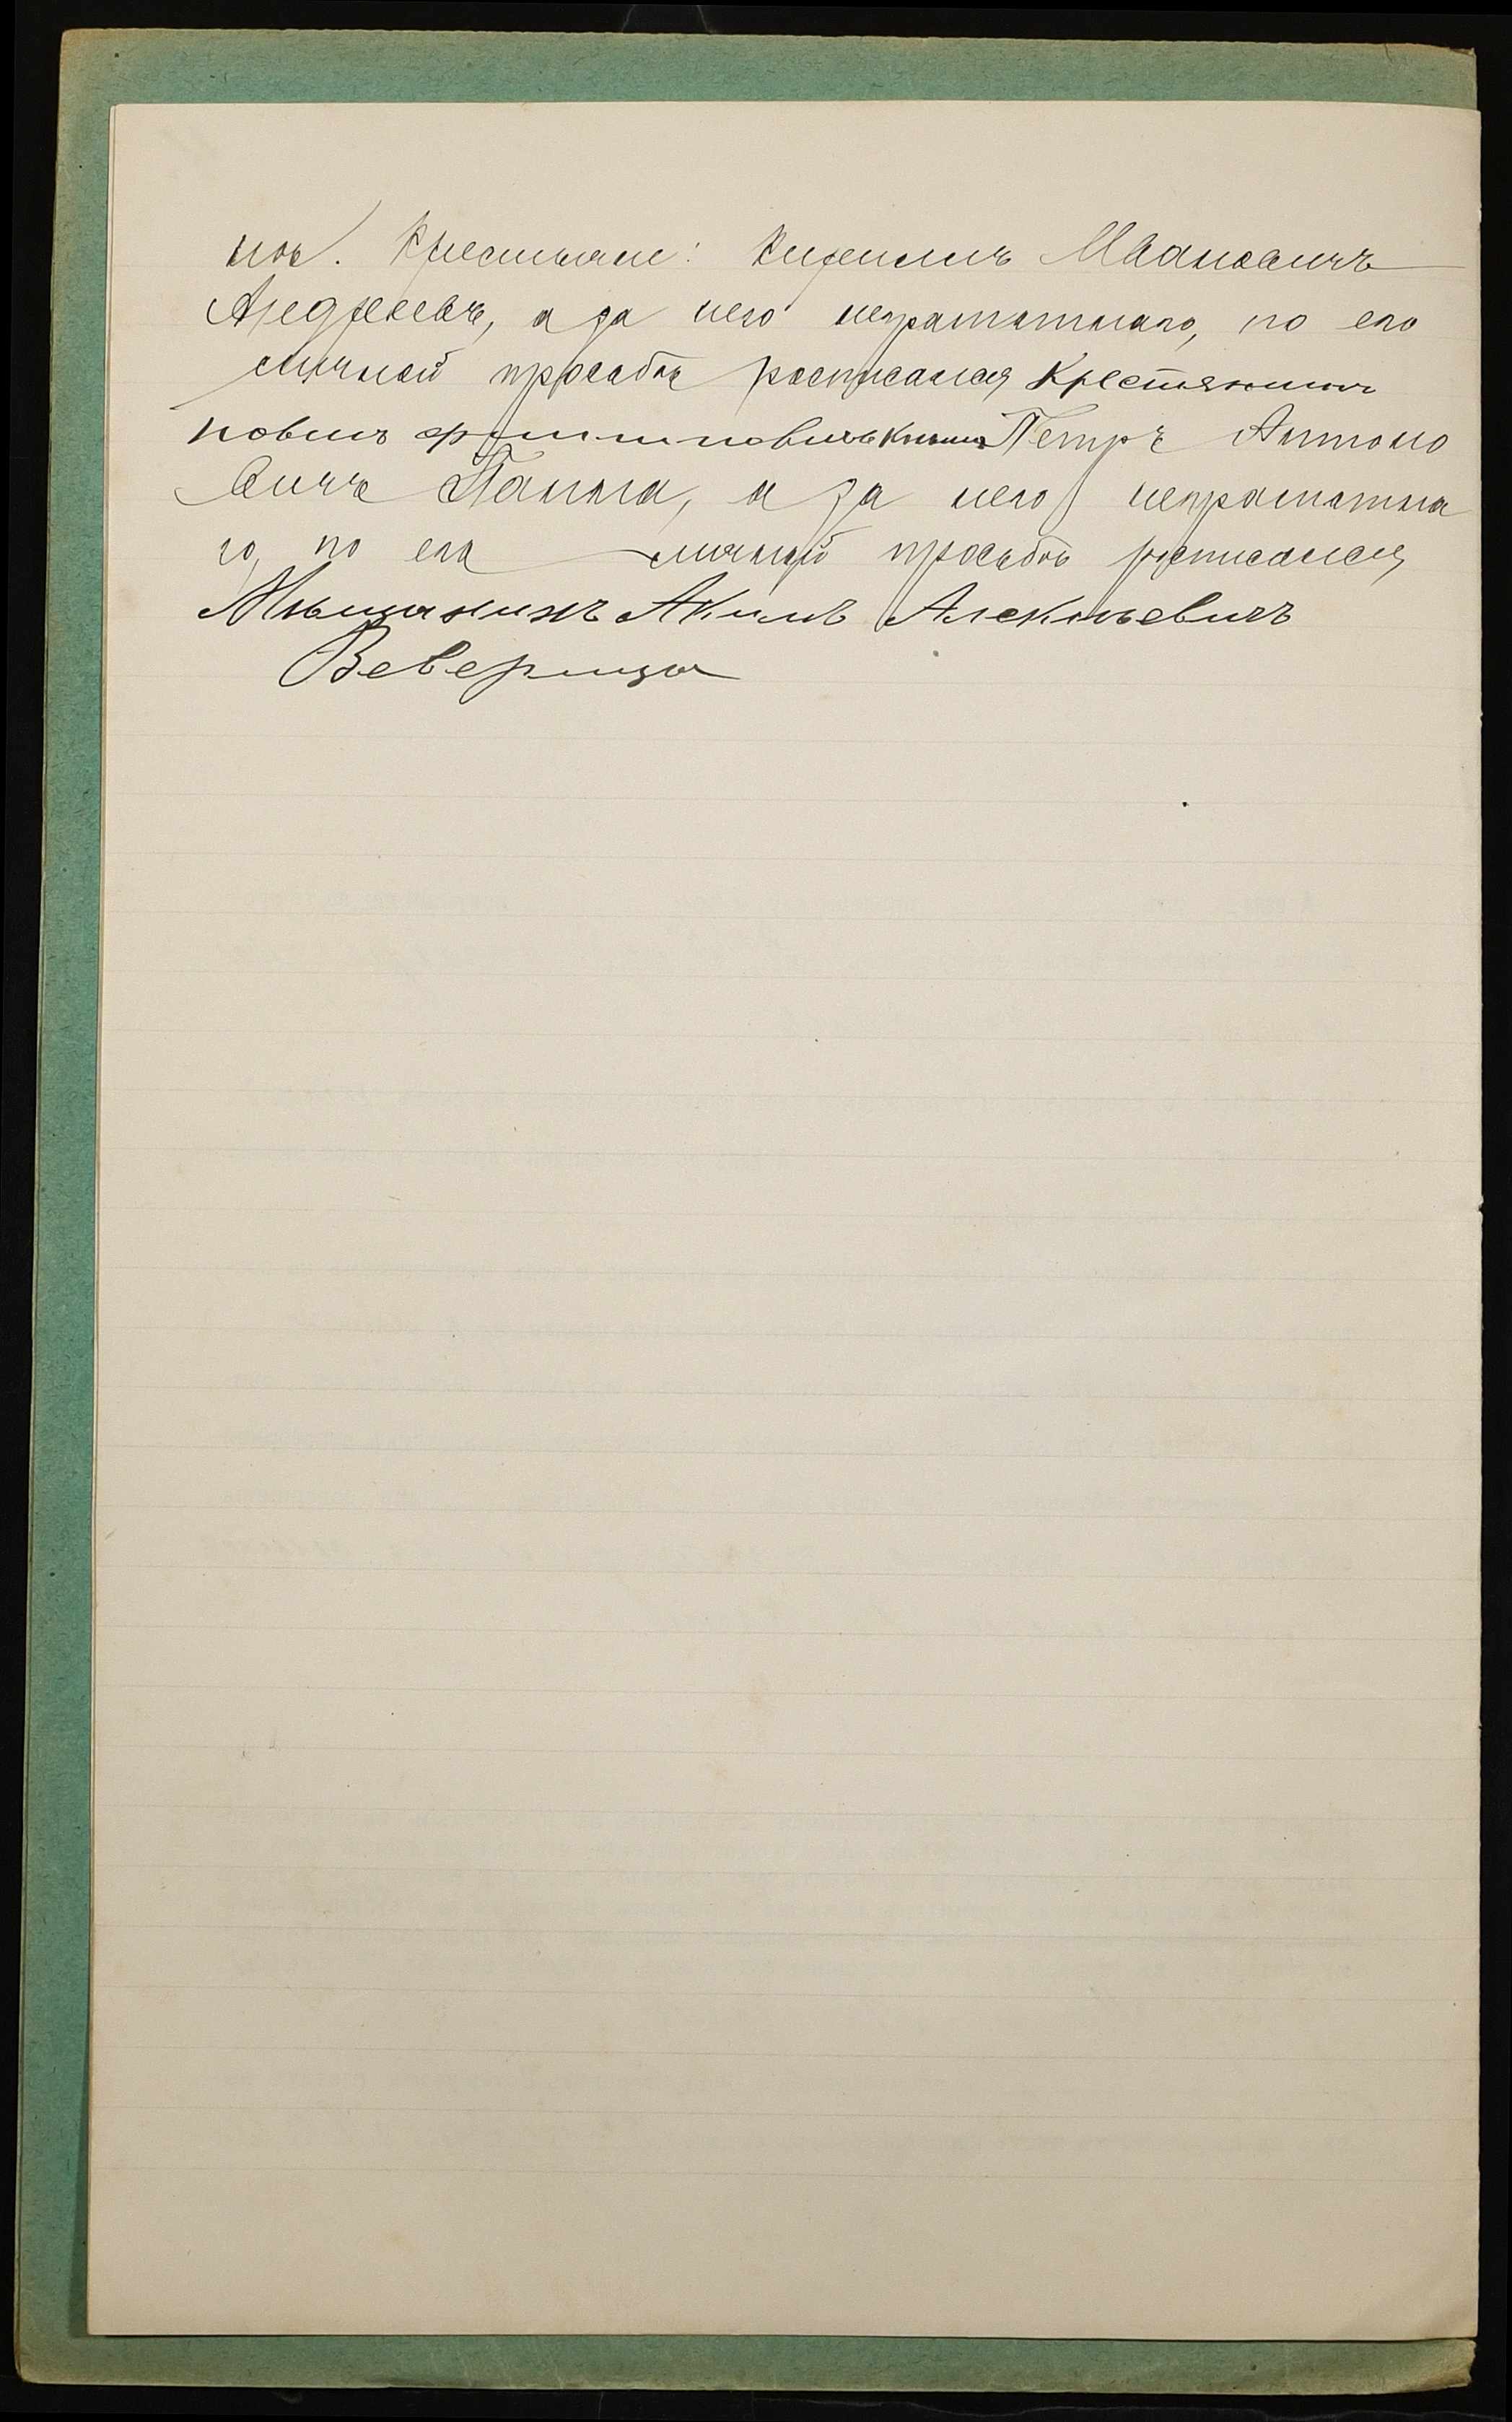 Крестьяне: Кирилъ Ивановичъ
Андреевъ, а за него неграматнаго, по его
личной просьбѣ росписался Крестянинъ
Филиповичъ Петръ Антоно
вичъ Панна, а за него неграматна
го, по его личной просьбѣ росписался
Мѣщанинъ Акимъ Алексѣевичъ
Веверица